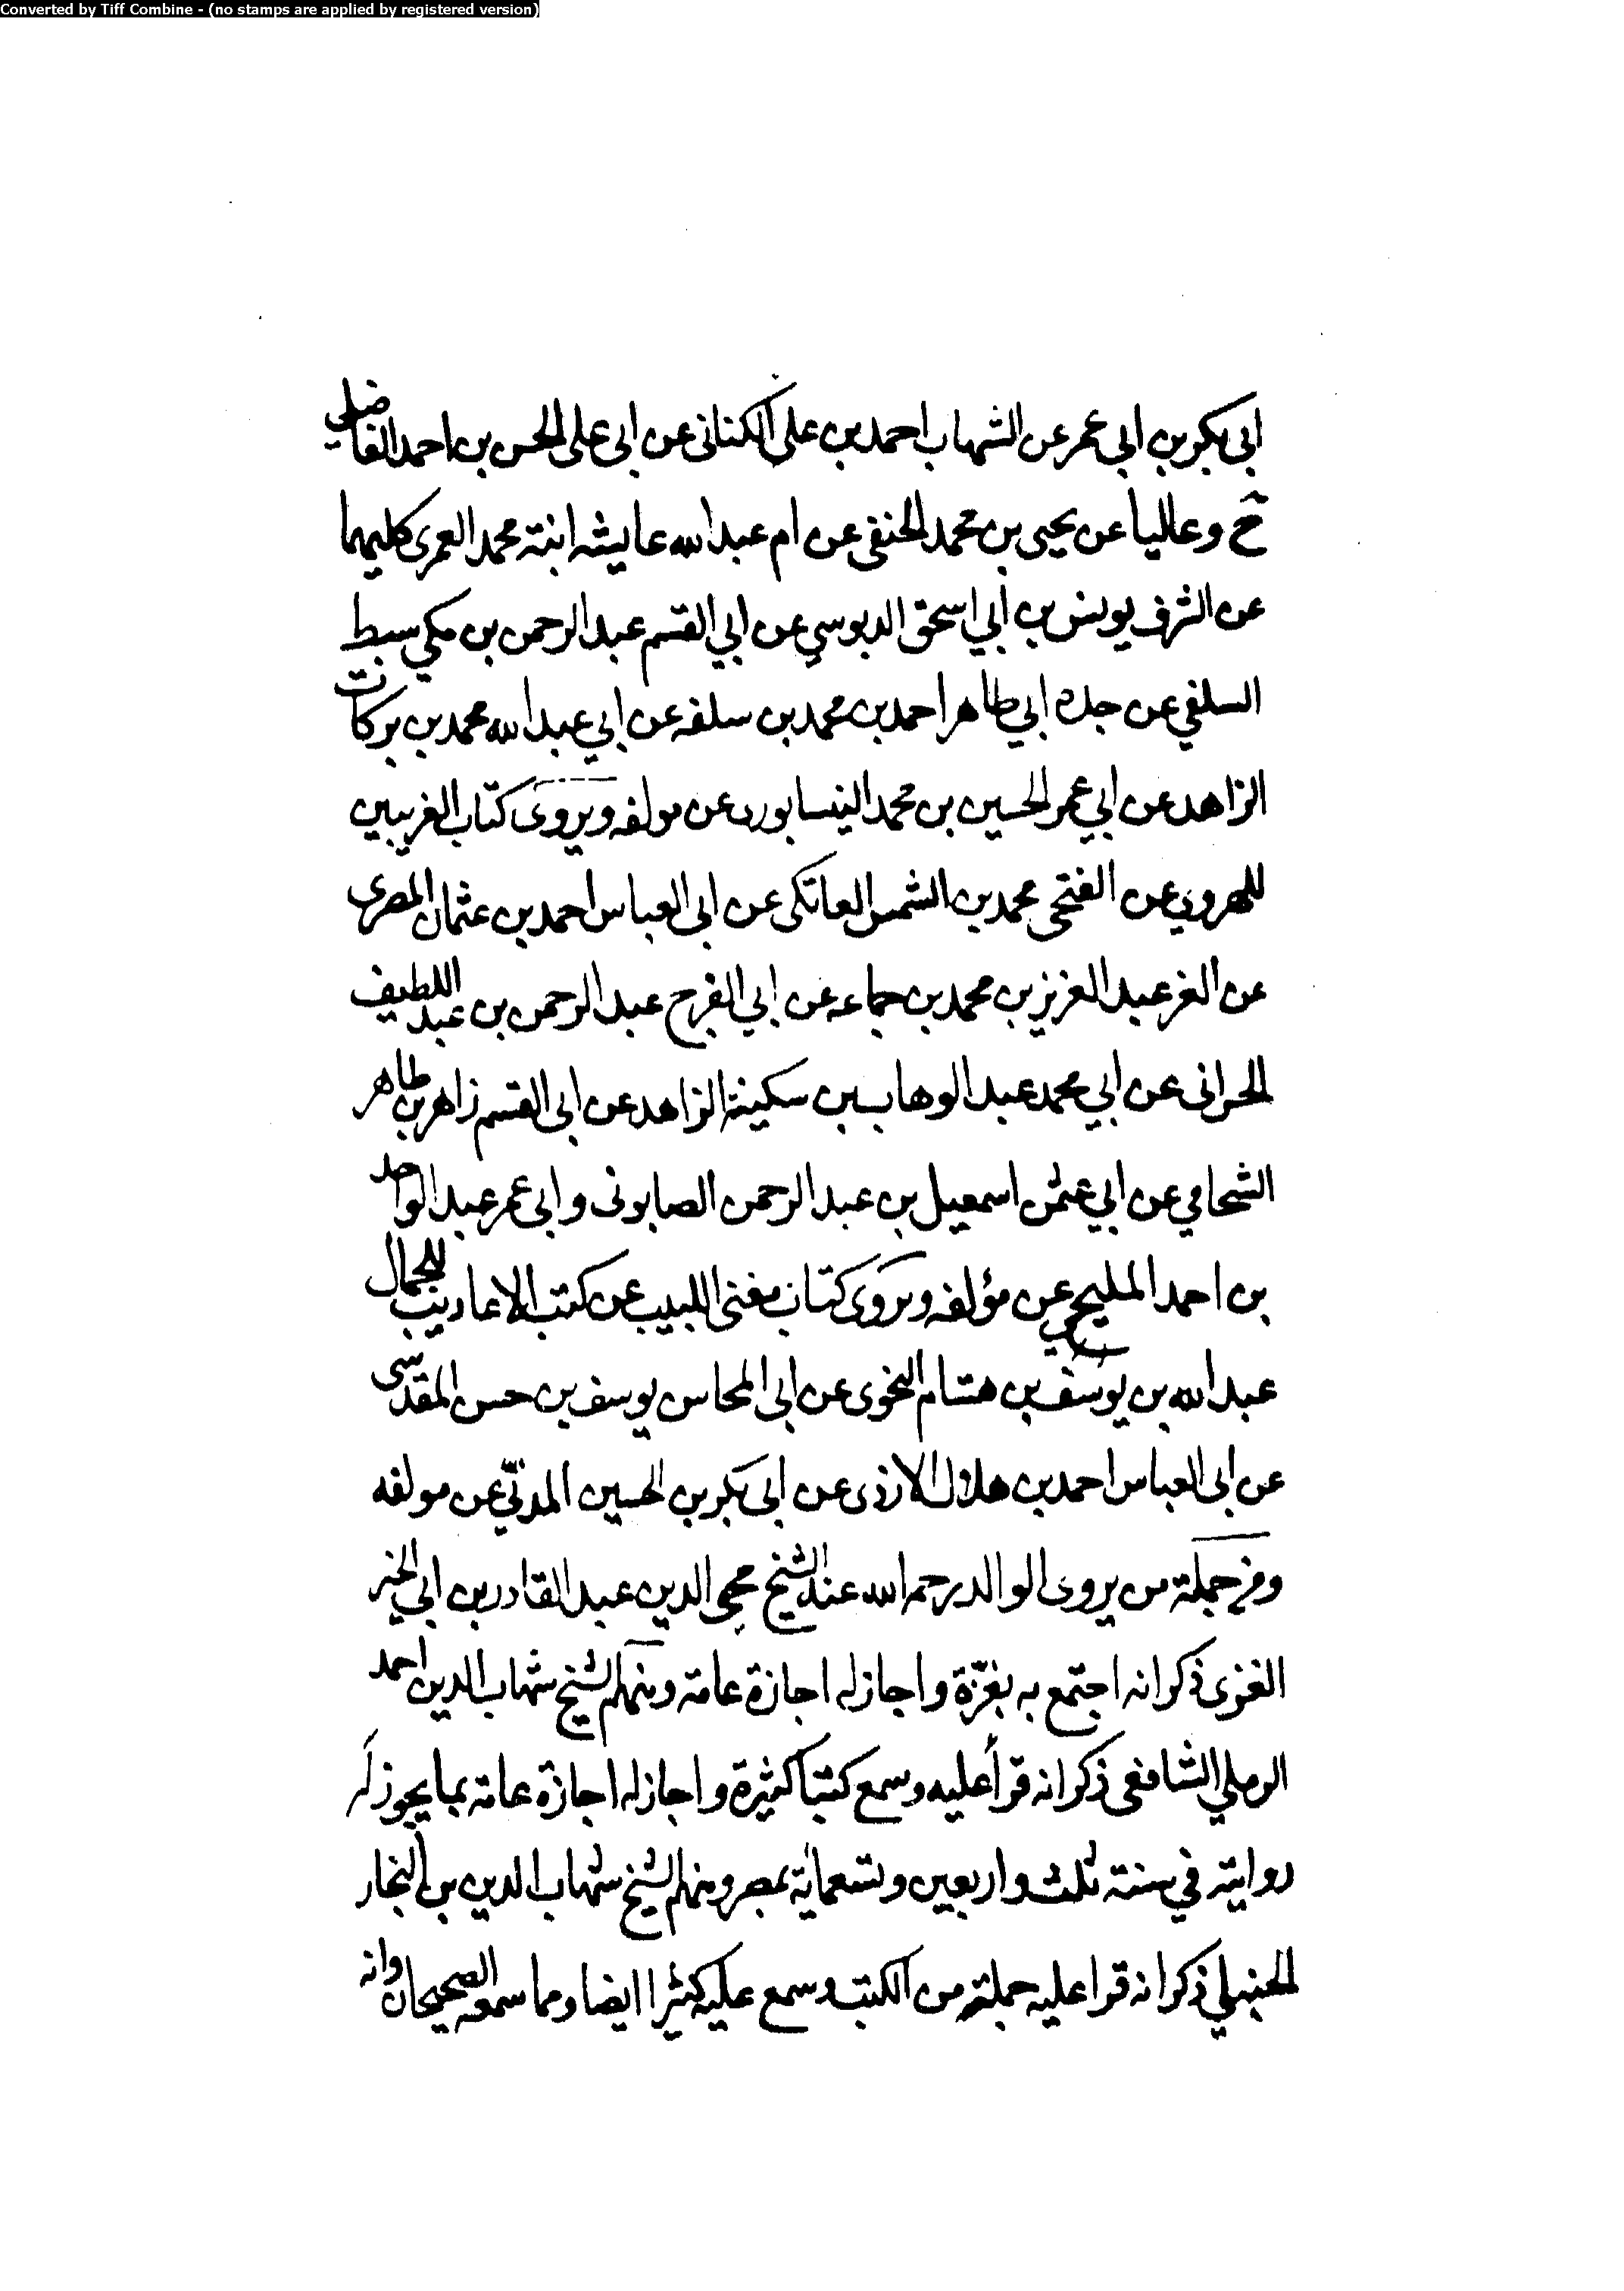 Converted by Tiff Combine - (no stamps are applied by registered version)
ابى بكر بن ابي عمر عن الشهاب احمد بن على الكنانى عن ابى على الحسن بن احمد الفاضلي
ح وعاليا عن يحيى بن محمد الحنفى عن ام عبد الله عايشه ابنة محمد العمرى كليهما
عن الشرف يونس بن ابي اسحق الدبوسي عن ابي القسم عبد الرحمن بن مكي سبط
السلفي عن جده ابي طاهر احمد بن محمد بن سلفه عن ابي عبد الله محمد بن بركات
الزاهد عن ابي عمر الحسين بن محمد النيسابورى عن مولفه ويروى كتاب الغريبين
للهروي عن الفتحى محمد بن الشمس العاتكى عن ابى العباس احمد بن عثمان المصرى
عن العز عبد العزيز بن محمد بن جماعه عن ابي الفرج عبد الرحمن بن عبد اللطيف
الحرانى عن ابي محمد عبد الوهاب بن سكينة الزاهد عن ابى القسم زاهر بن طاهر
الشحامي عن ابي عثمن اسمعيل بن عبد الرحمن الصابونى وابى عمر عبد الواحد
بن احمد المليحي عن مؤلفه ويروى كتاب مغنى اللبيب عن كتب الاعاريب للجمال
عبد الله بن يوسف بن هشام النحوى عن ابى المحاسن يوسف بن حسن المقدسى
عن ابى العباس احمد بن هلال الازدى عن ابى بكر بن الحسين المدني عن مولفه
ومن جملة من يروى الوالد رحمه الله عنه الشيخ محيى الدين عبد القادر بن ابي الخير
الغزى ذكر انه اجتمع به بغزّة واجاز له اجازة عامة ومنهم الشيخ شهاب الدين احمد
الرملي الشافعى ذكر انه قرأ عليه وسمع كتبا كثيرة واجاز له اجازة عامة بما يجوز له
روايته في سنة ثلث واربعين وتسعمائة بمصر ومنهم الشيخ شهاب الدين بن النجار
الحنبلي ذكر انه قرا عليه جملة من الكتب وسمع عليه كثيرا ايضا ومما سمعه الصحيحان وانه